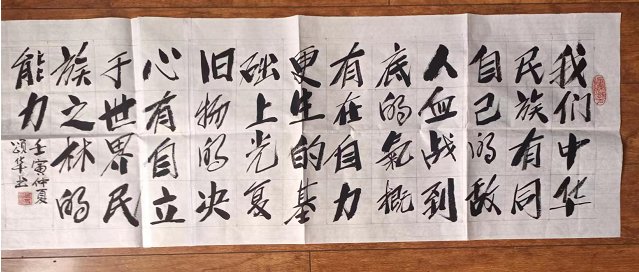 我们中华
民族有同
自己的敌
人血战到
底的氣概
有在自力
更生的基
础上光复
旧物的决
心有自立
于世界民
族之林的
能力
壬寅仲夏
颂华书